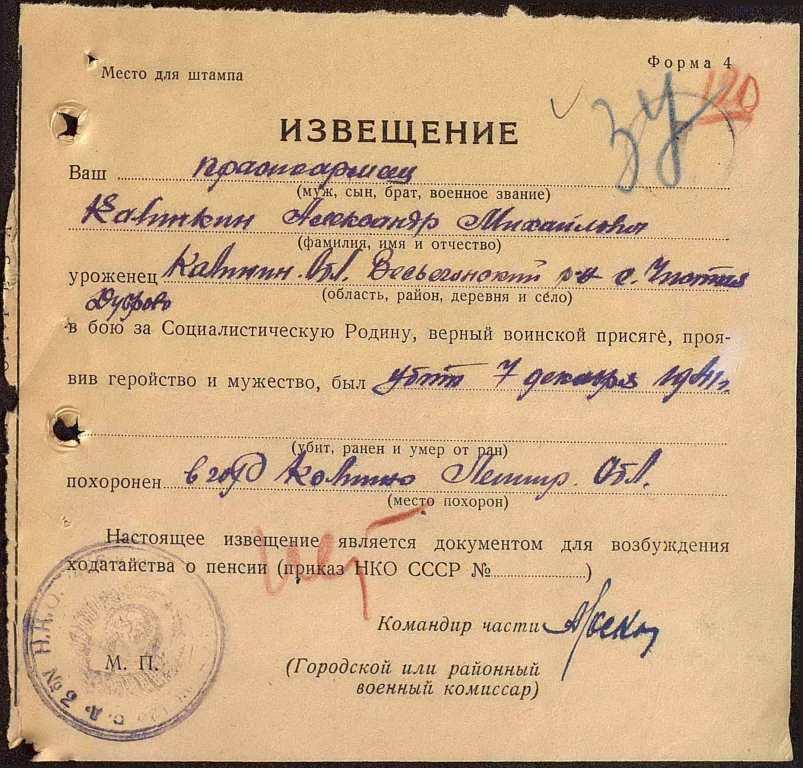 Место для штампа
Форма 4
120
ИЗВЕЩЕНИЕ
Ваш красноармеец
(муж, сын, брат, военное звание)
Калинкин Александр Михайлович
(фамилия, имя и отчество)
уроженец Калинин. Обл. Весьегонский р-н с. Чистая
(область, район, деревня и село)
Дуброва
в бою за Социалистическую Родину, верный воинской присяге, проя-
вив геройство и мужество, был убит 7 декабря 1941 г.
(убит, ранен и умер от ран)
похоронен в гор Колпино Ленингр. Обл.
(место похорон)
Настоящее извещение является документом для возбуждения
ходатайства о пенсии (приказ НКО СССР № )
нет
Командир части
М. П.
(Городской или районный
военный комиссар)
Н.К.О.